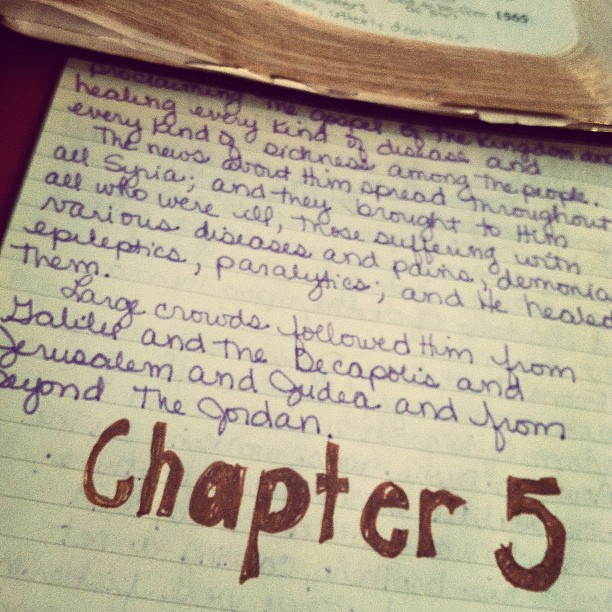 1565
proclaiming the gospel of the kingdom and
healing every kind of disease and
every kind of sickness among the people.
The news about Him spread throughout
all Syria; and they brought to Him
all who were ill, those suffering with
various diseases and pains, demoniacs
epileptics, paralytics; and He healed
them.
Large crowds followed Him from
Galilee and the Decapolis and
Jerusalem and Judea and from
beyond the Jordan.
Chapter 5